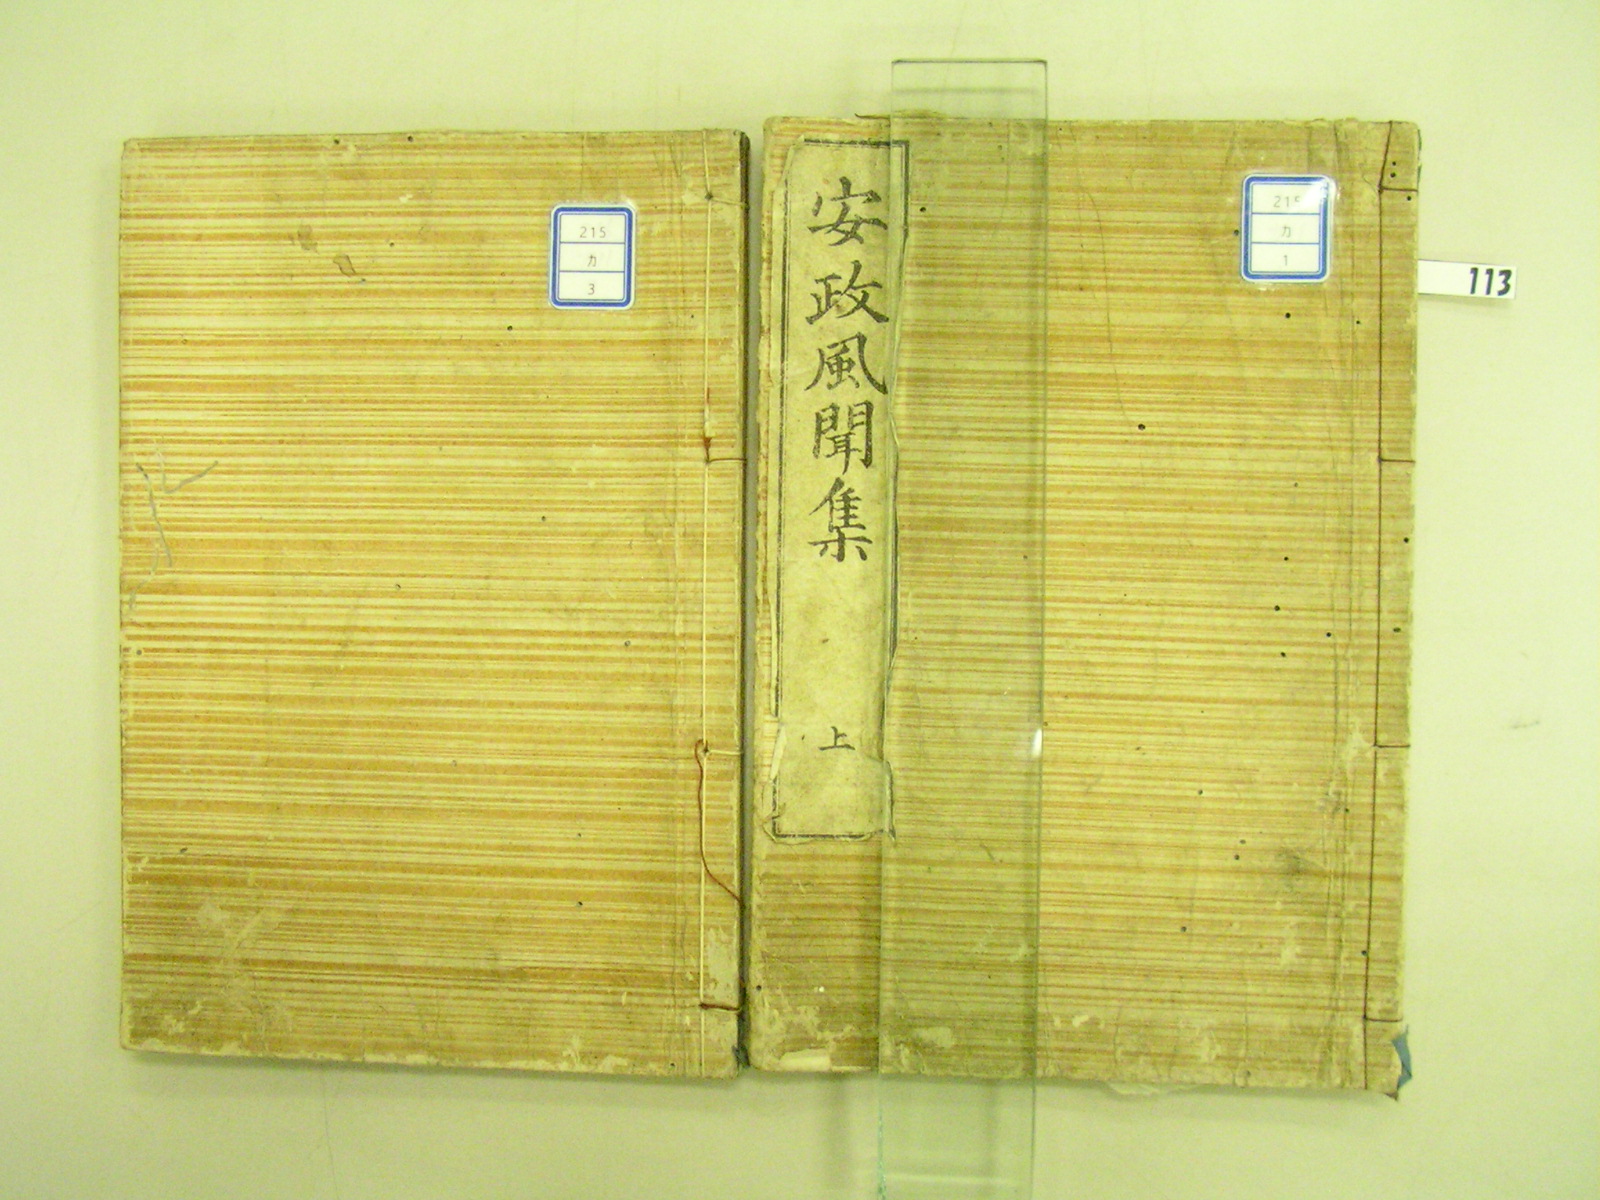 安政風聞集
上
215
カ
1
113
215
カ
3